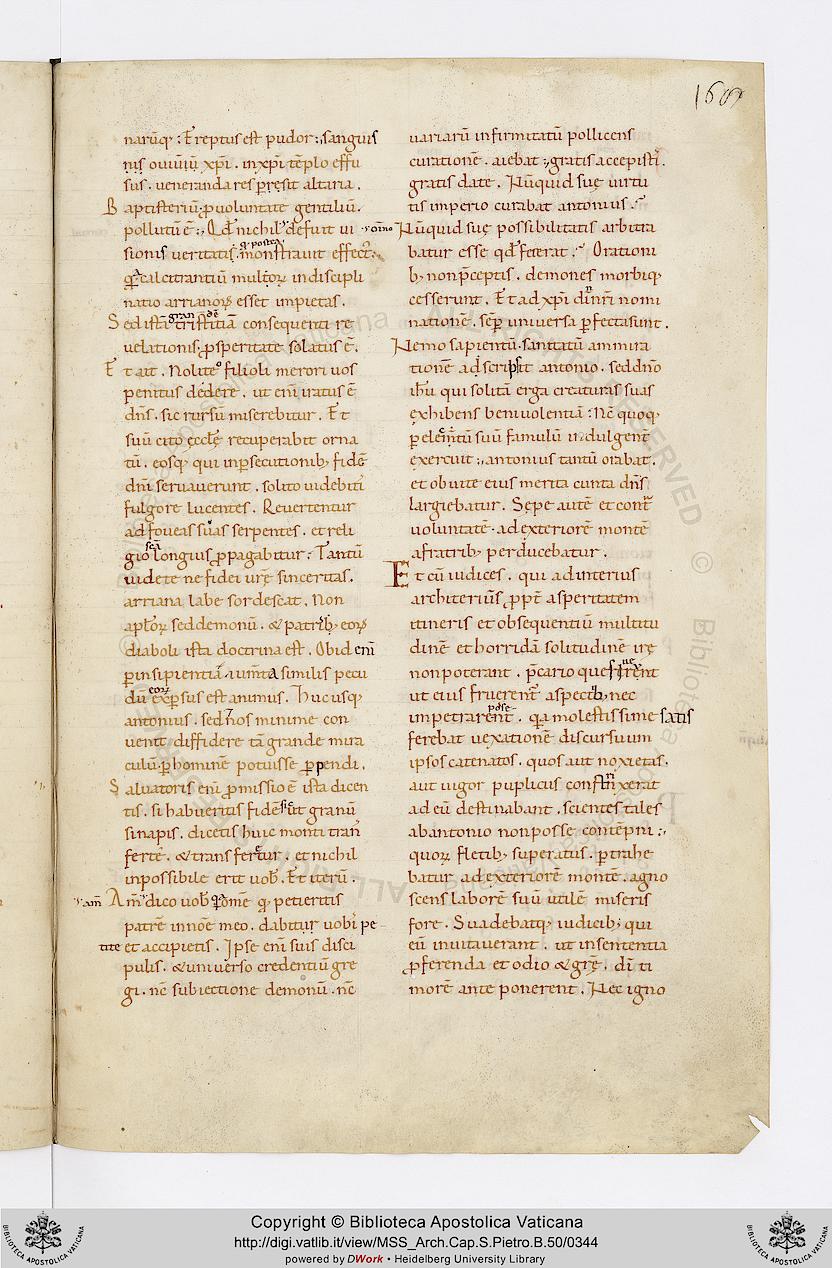 160
narūq; Ereptus est pudor; sanguis
nis ouiuīu xp̄i. inxp̄i tēplo effu
sus. ueneranda res p̄resit altaria.
Baptisteriū ꝓuoluntate gentiliū.
pollutū ē; Qd̄ nichil defuit ui
sionis ueritatis. monstrauit effect;
calcitrantiū multoꝝ indiscipli
natio arrianoꝝ esset impietas.
Sed istā tristitiā consequenti re
uelationis ꝓsperitate solatus ē.
Et ait. Nolite filioli merori uos
penitus dedere. ut eni iratus ē
dn̄s. sic rursū miserebitur. Et
suū cito eccłę recuperabit orna
tū. eosq; qui inꝑsecutionib; fidē
dn̄i seruauerunt. solito uidebitis
fulgore lucentes. Reuertentur
adfoueas suas serpentes. et reli
gio longius ꝓpagabitur. Tantū
uidete ne fidei urē sinceritas.
arriana labe sordescat. Non
apłoꝝ sed demonū. & patrib; eoꝝ
diaboli ista doctrina est. Obid enī
ꝑinsipientiā iumta similis pecu
dū exꝑsus est animus. Hucusq;
antonius. sed nos minime con
uenit diffidere tā grande mira
culū ꝑhominē potuisse ꝓpendi.
Saluatoris eni ꝓmissio ē ista dicen
tis. si habueritis fidē sic̄ut granū
sinapis. dicetis huic monti tran
ferte. & transferetur. et nichil
inpossibile erit uob̄. Et iterū.
Am̄ dico uob̄ omē q̄ petieritis
patrē innoē meo. dabitur uobis pe
tite et accipietis. Ipse eni suis disci
pulis. & uniuerso credentiū gre
gi. nē subiectione demonū. nē
uariarū infirmitatū pollicens
curationē. aiebat; gratis accepisti.
gratis date. Nūquid suę uirtu
tis imperio curabat antonius.
Nūquid suę possibilitatis arbitra
batur esse qd̄ fecerat. Orationi
b; non p̄ceptis. demones morbiq;
cesserunt. Et ad xp̄i dn̄i nomi
nationē. sēp uniuersa ꝑfecta sunt.
Nemo sapientū sanitatū ammira
tionē adscripsit antonio. sed dn̄o
ih̄u qui solitā erga creaturas suas
exhibens beniuolentiā. Nē quoq;
ꝑelemtū suū famulū indulgent
exercuit; antonius tantū orabat.
et obuite eius merita cunta dn̄s
largiebatur. Sepe autē et cont̄
uoluntatē. ad exteriorē montē
afratrib; perducebatur.
Et cū iudices. qui ad interius
architeriū ꝓpt asperitatem
itineris et obsequentiū multitu
dinē et horridā solitudinē ire
non poterant. p̄cario que
ut eius fruerent aspectib; nec
impetrarent. qa molestissime satis
ferebat uexationē discursuum
ipsos catenatos. quos aut noxietas.
aut uigor puplicus constrinxerat
ad eū destinabant. scientes tales
abantonio nonposse contēpni;
quoꝝ fletib; superatus. ꝑtrahe
batur ad exteriorē montē. agno
scens laborē suū utilē miseris
fore. Suadebatq; iudicib; qui
eū inuitauerant. ut insententia
ꝓferenda et odio & grē. dī ti
morē ante ponerent. Nec igno
Copyright © Biblioteca Apostolica Vaticana
http://digi.vatlib.it/view/MSS_Arch.Cap.S.Pietro.B.50/0344
powered by DWork • Heidelberg University Library